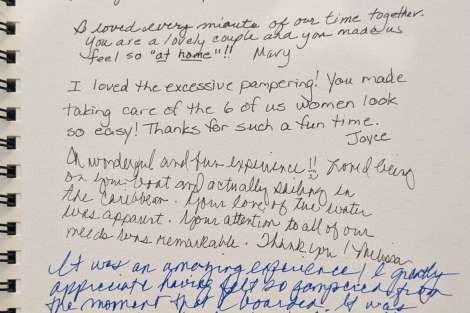 I loved every minute of our time together.
You are a lovely couple and you made us
feel so "at home"!! Mary
I loved the excessive pampering! You made
taking care of the 6 of us women look
so easy! Thanks for such a fun time.
Joyce
Oh wonderful and fun experience!! Loved being
on your boat and actually sailing in
the Caribbean. Your love of the water
was apparent. Your attention to all of our
needs was remarkable. Thank you! Melissa
It was an amazing experience! I greatly
appreciate having felt so pampered from
the moment that I boarded. It was